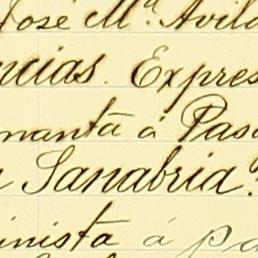 José Mª Avila
ncias. Expres
manta á Pas
Sanabria
inista á pa